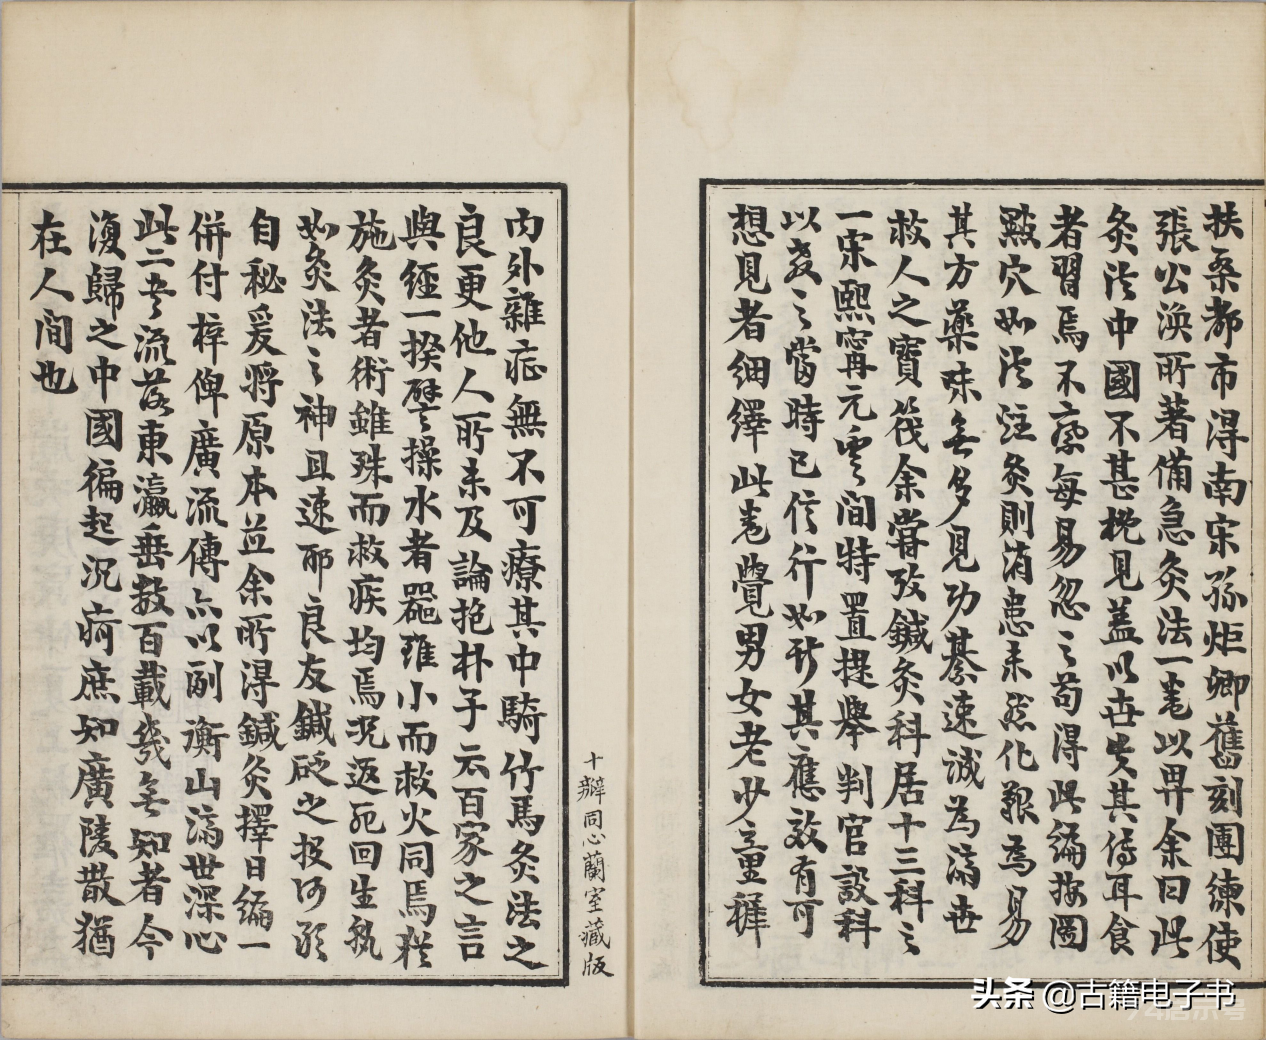 扶桑都市淂南宋孫炬卿舊刻團練使
張公渙所著備急灸法一卷以畀余曰此
灸法中國不甚概見蓋以世失其傳耳食
者習焉不察每易忽之苟淂此編按圖
點穴如法注灸則消患未然化艱為易
其方藥味無多見功綦速誠為濟世
救人之寶筏余嘗攷鍼灸科居十三科之
一宋熙甯元豐間特置提舉判官設科
以教之當時已信行如斯其應效有可
想見者細繹此卷覺男女老少童穉
内外雜症無不可療其中騎竹馬灸法之
良更他人所未及論抱朴子云百家之言
與經一揆譬操水者器雖小而救火同焉猶
施灸者術雖殊而救疾均焉況返死回生孰
如灸法之神且速耶良友鍼砭之投何敢
自秘爰將原本並余所淂鍼灸擇日編一
併付梓俾廣流傳亦以副衡山濟世深心
此二書流落東瀛垂數百載幾無知者今
復歸之中國徧起沉疴庶知廣陵散猶
在人間也
十瓣同心蘭室藏版
头条 @古籍电子书